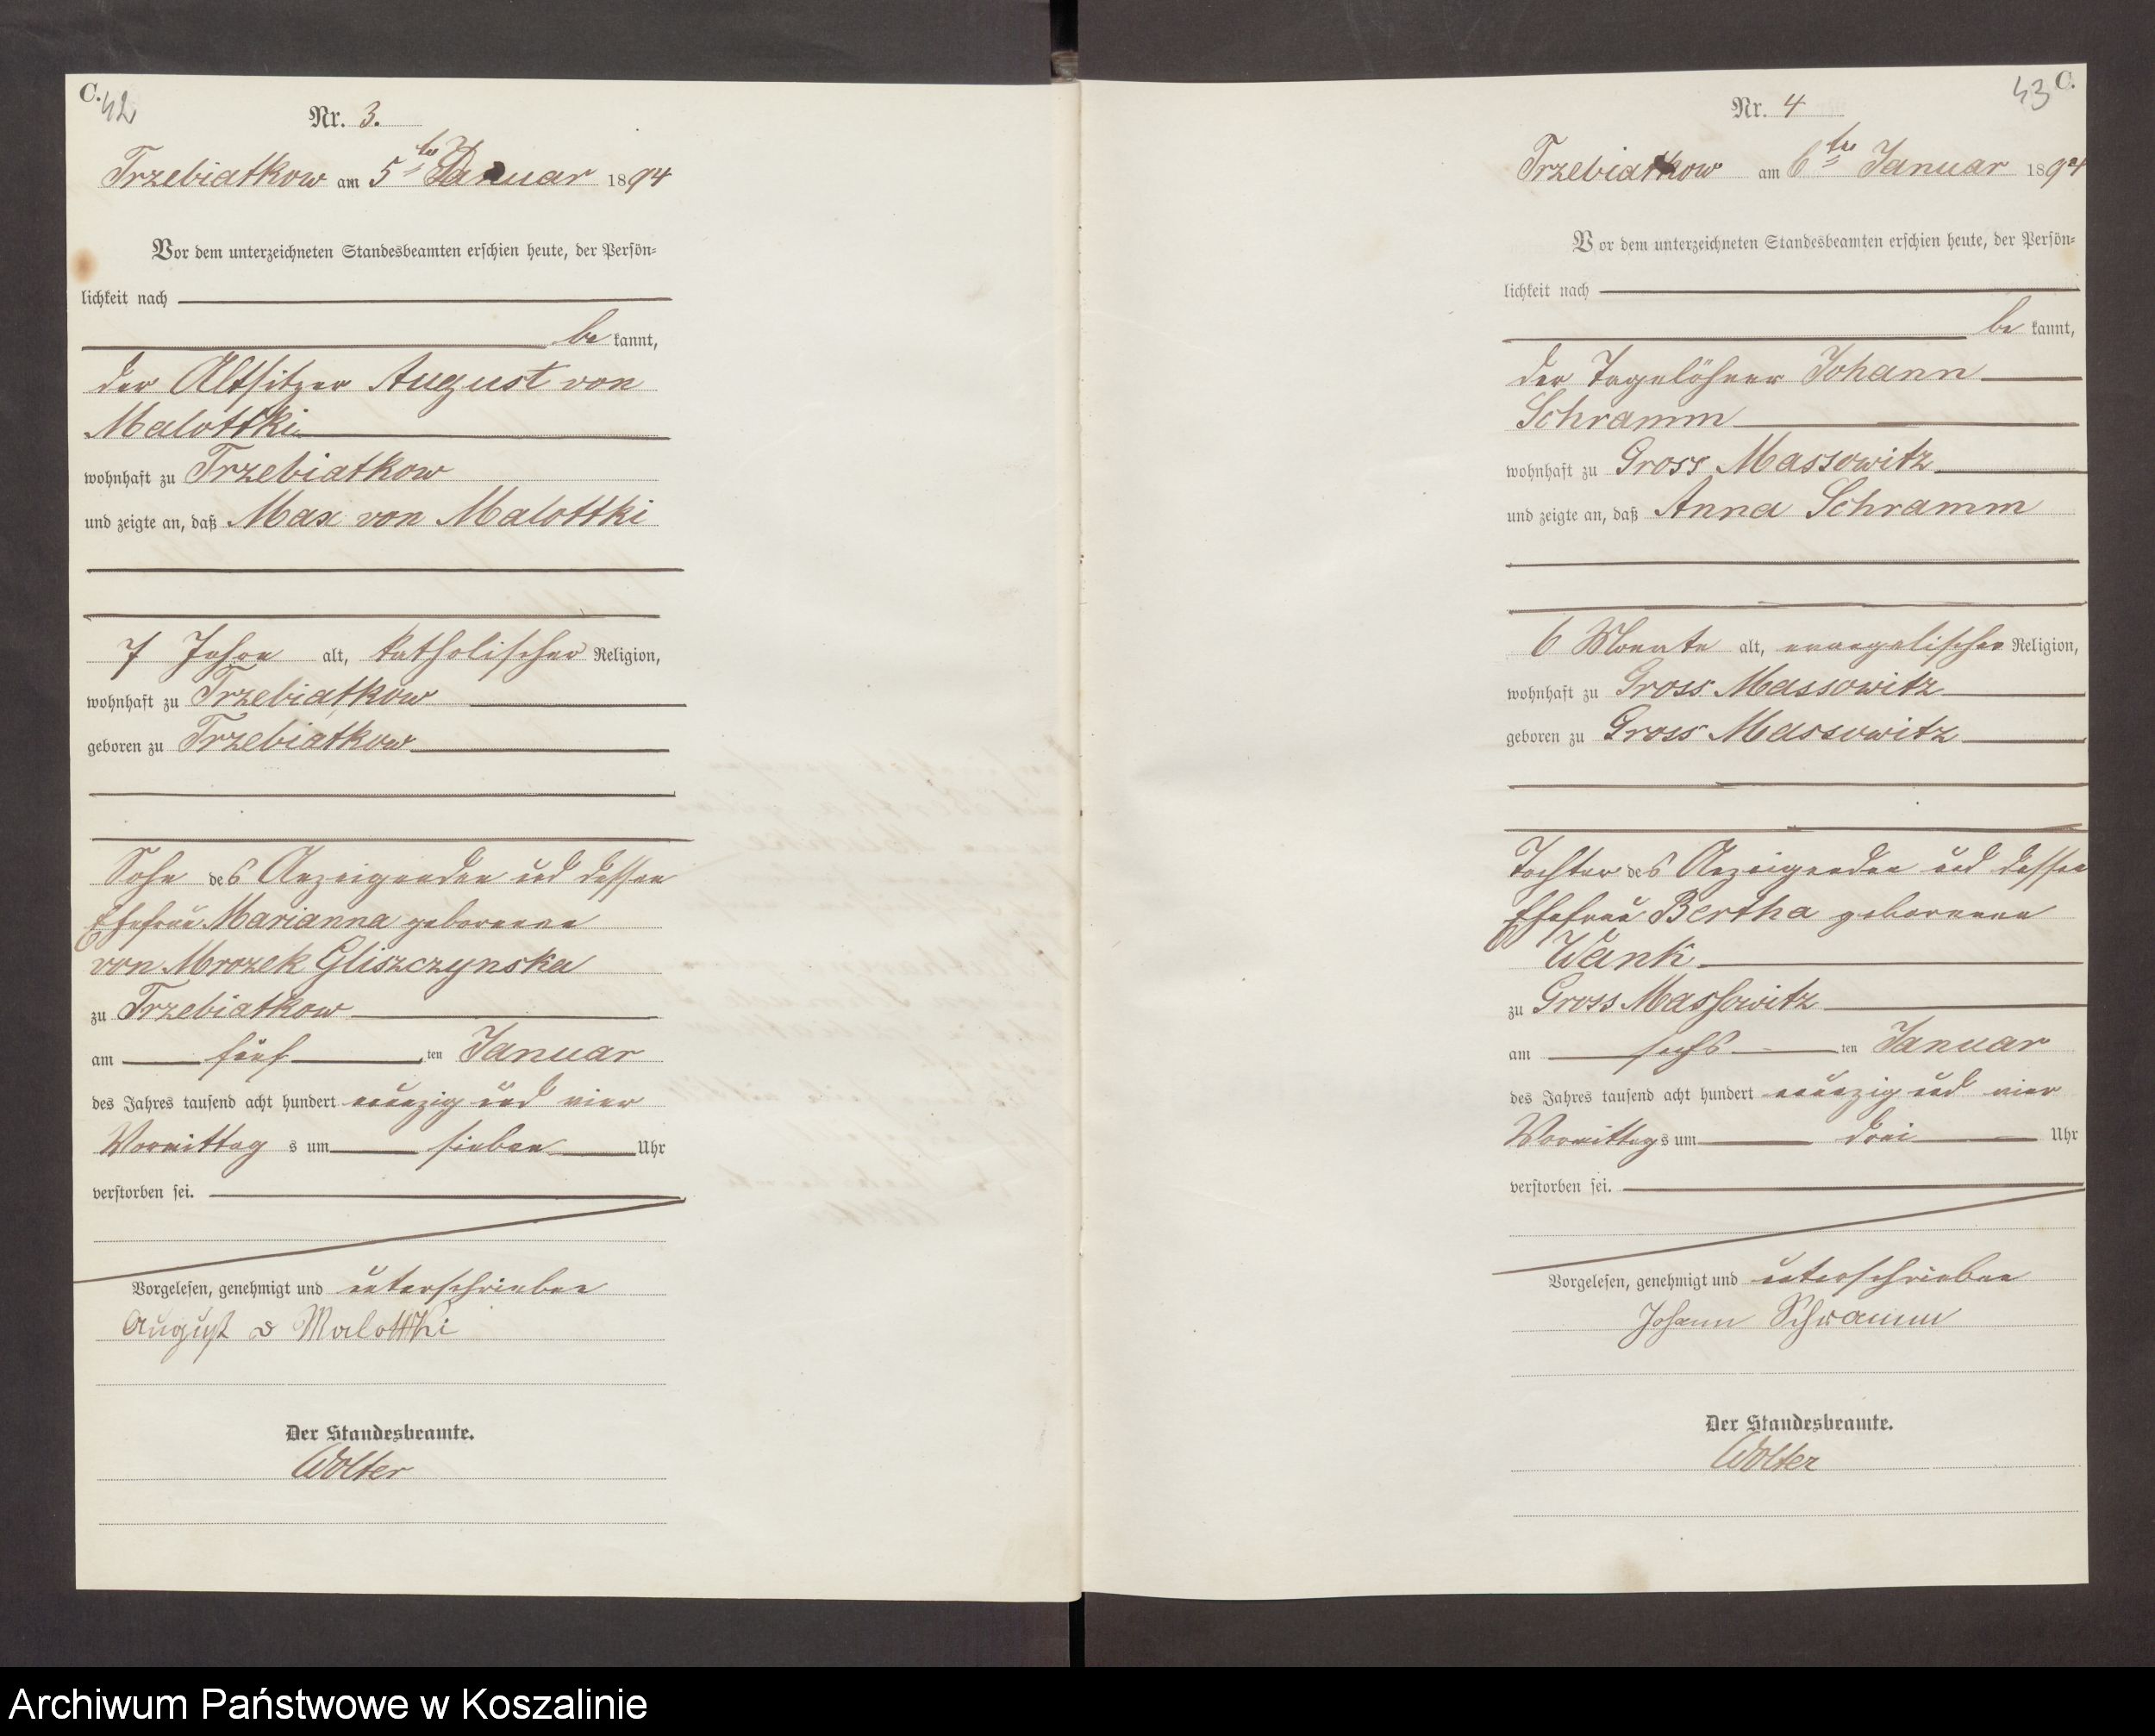 C.
42
Nr. 3.
Trzebiatkow am 5ten Januar 1894
Vor dem unterzeichneten Standesbeamten erschien heute, der Persön-
lichkeit nach
be kannt,
der Altsitzer August von
Malottki
wohnhaft zu Trzebiatkow
und zeigte an, daß Max von Malottki
7 Jahre alt, katholischer Religion,
wohnhaft zu Trzebiatkow
geboren zu Trzebiatkow
Sohn des Anzeigenden und dessen
Ehefrau Marianna geborenen
von Mrozek Gliszczynska
zu Trzebiatkow
am fünf ten Januar
des Jahres tausend acht hundert neunzig und vier
Vormittag s um sieben Uhr
verstorben sei.
Vorgelesen, genehmigt und unterschrieben
August v Malottki
Der Standesbeamte.
Wolter
43 C.
Nr. 4
Trzebiatkow am 6ten Januar 1894
Vor dem unterzeichneten Standesbeamten erschien heute, der Persön-
lichkeit nach
be kannt,
der Tagelöhner Johann
Schramm
wohnhaft zu Gross Massowitz
und zeigte an, daß Anna Schramm
6 Monate alt, evangelischer Religion,
wohnhaft zu Gross Massowitz
geboren zu Gross Massowitz
Tochter des Anzeigenden und dessen
Ehefrau Bertha geborenen
Wank
zu Gross Massowitz
am sechs ten Januar
des Jahres tausend acht hundert neunzig und vier
Vormittags um drei Uhr
verstorben sei.
Vorgelesen, genehmigt und unterschrieben
Johann Schramm
Der Standesbeamte.
Wolter
Archiwum Państwowe w Koszalinie